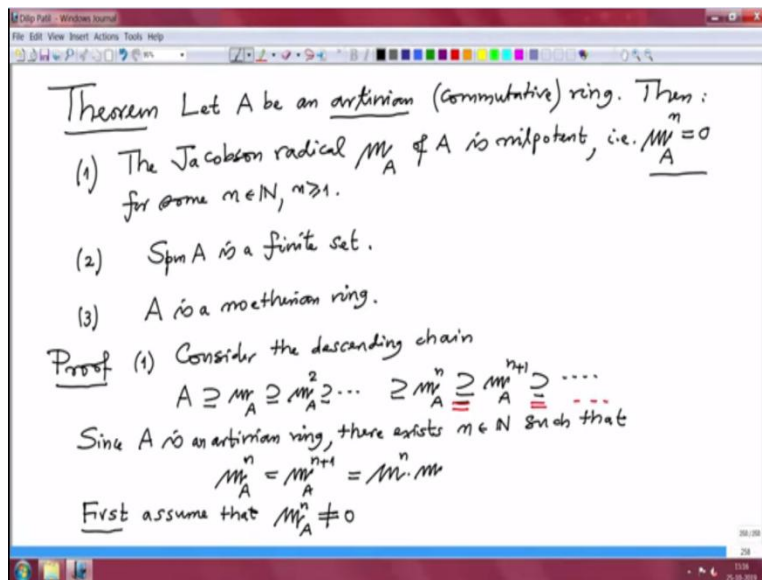 Dilip Patil - Windows Journal
File Edit View Insert Actions Tools Help
Theorem Let A be an artinian (commutative) ring. Then :
(1) The Jacobson radical 𝔪_A of A is nilpotent, i.e. 𝔪_A^n = 0
for some n ∈ ℕ, n ≥ 1.
(2) Spm A is a finite set.
(3) A is a noetherian ring.
Proof (1) Consider the descending chain
A ⊇ 𝔪_A ⊇ 𝔪_A^2 ⊇ ··· ⊇ 𝔪_A^n ⊇ 𝔪_A^{n+1} ⊇ ····
Since A is an artinian ring, there exists n ∈ ℕ such that
𝔪_A^n = 𝔪_A^{n+1} = 𝔪^n · 𝔪
First assume that 𝔪_A^n ≠ 0
258